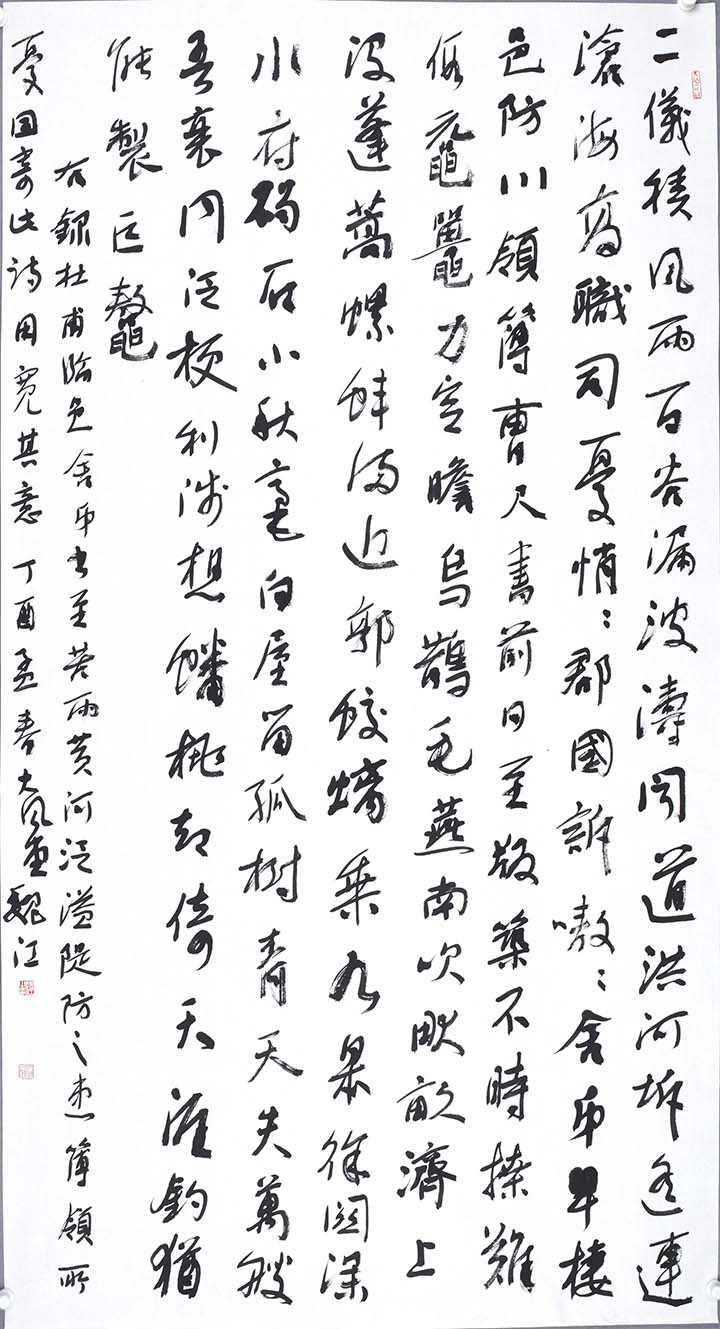 二儀積風雨百谷漏波濤聞道洪河坼遙連
滄海高職司憂悄〻郡國訴嗷〻舍弟卑棲
邑防川領簿曹尺書前日至版築不時操難
假黿鼉力空瞻烏鵲毛燕南吹畎畝濟上
沒蓬蒿螺蚌滿近郭蛟螭乘九皋徐關深
水府碣石小秋毫白屋留孤樹青天失萬艘
吾衰同泛梗利涉想蟠桃却倚天涯釣猶
能製巨鼇
右錄杜甫臨邑舍弟書至苦雨黃河泛溢隄防之患簿領所
憂因寄此詩用寬其意丁酉孟春大風堂魏江